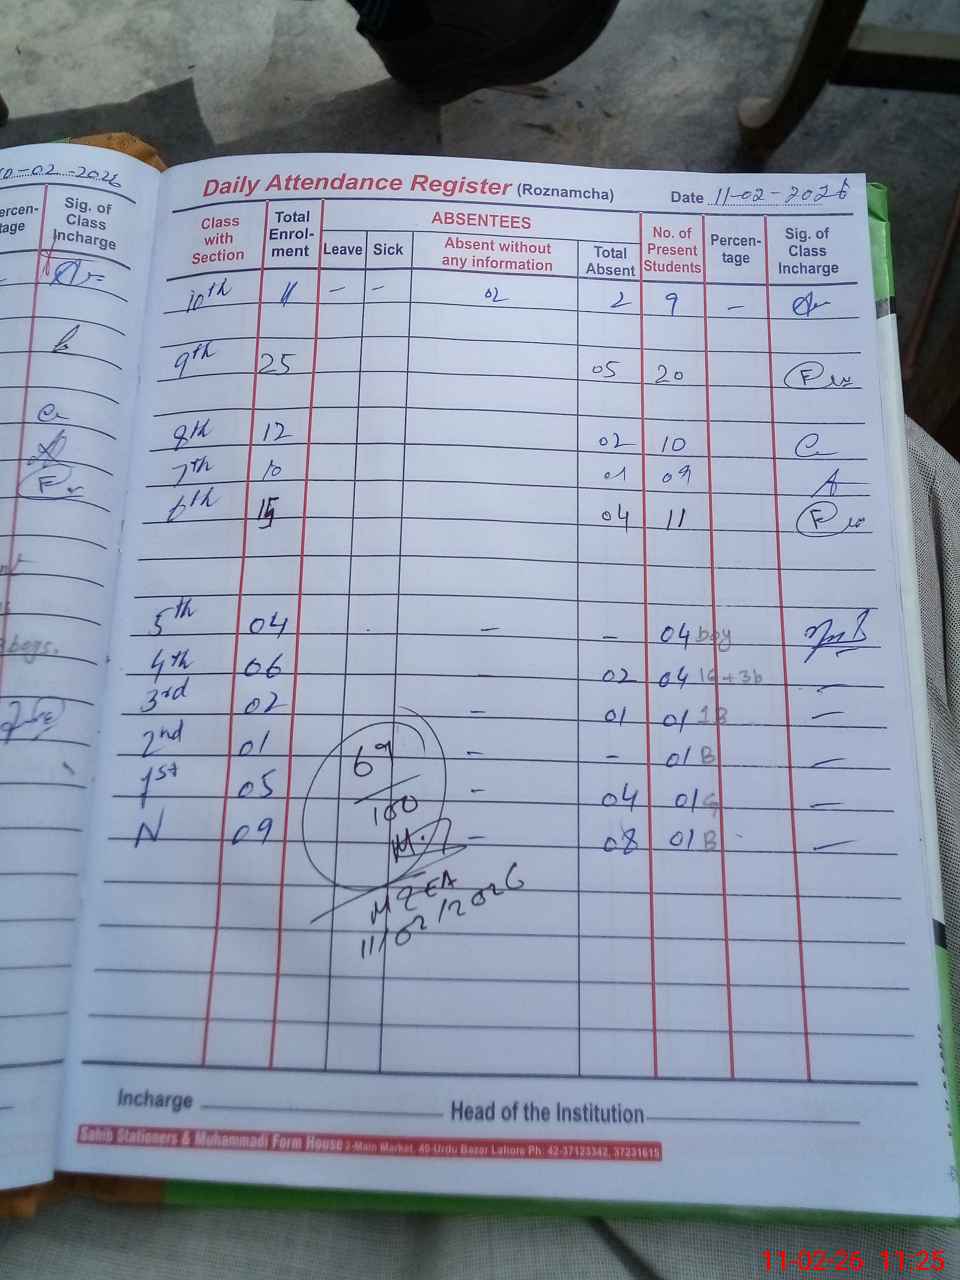 10-02-2026
Daily Attendance Register (Roznamcha) Date 11-02-2026
Sig. of Class Incharge
Class with Section Total Enrol-ment ABSENTEES No. of Present Students Percen-tage Sig. of Class Incharge
Leave Sick Absent without any information Total Absent
10th 11 - - 02 2 9 -
9th 25 05 20 F
8th 12 02 10
7th 10 01 09 A
6th 15 04 11 F
5th 04 - - 04 boy
4th 06 - 02 04 1G+3b -
3rd 02 - 01 01 1B -
2nd 01 - - 01 B -
1st 05 - 04 01 G -
N 09 - 08 01 B -
69
100
MZEA
11/02/2026
Incharge Head of the Institution
Sahib Stationers & Muhammadi Form House 2-Main Market, 40-Urdu Bazar Lahore Ph: 42-37123342, 37231615
11-02-26 11:25